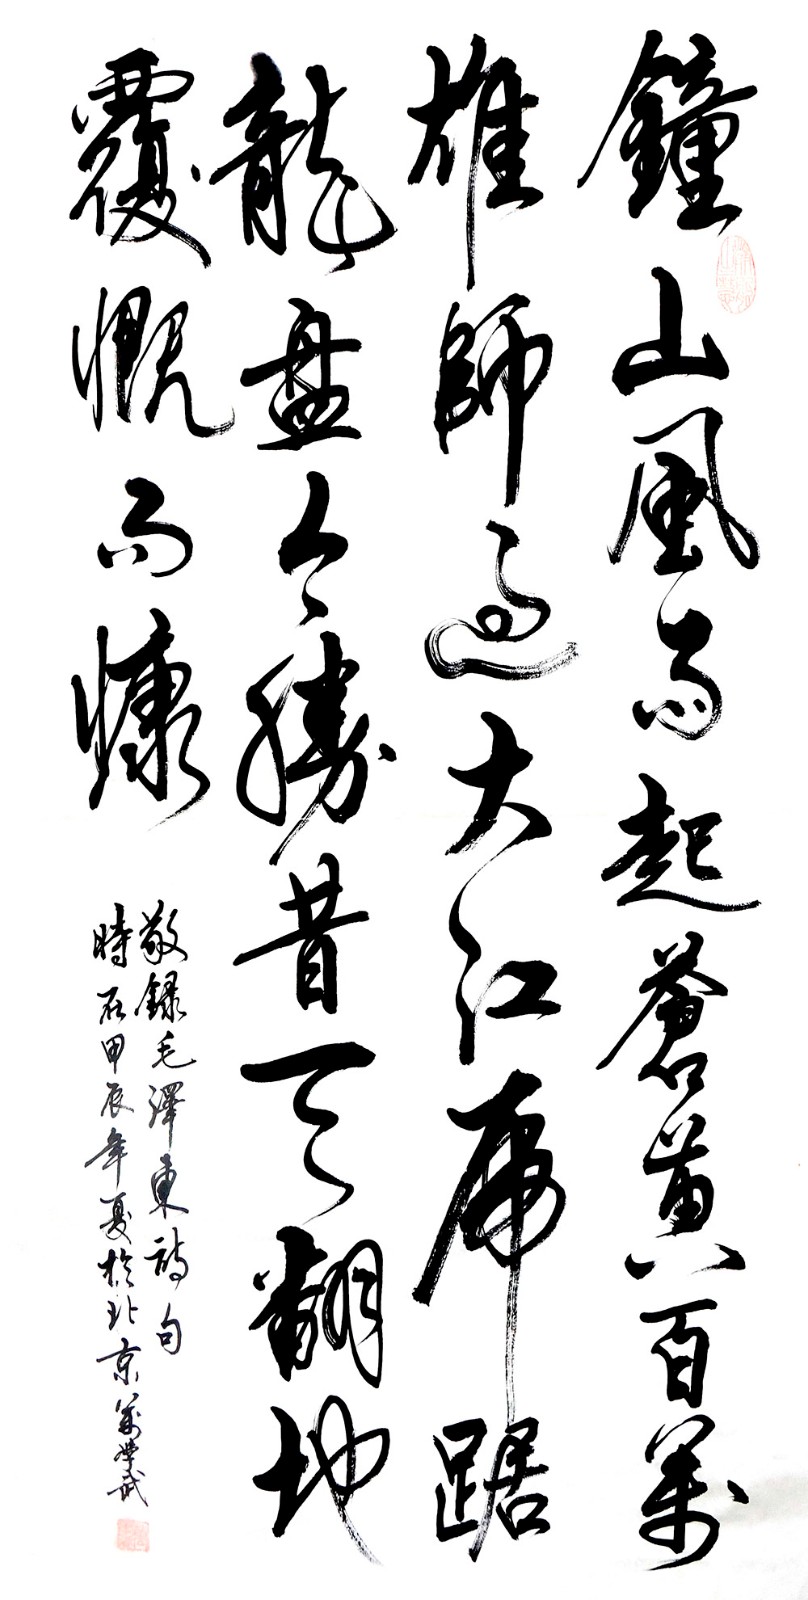 鐘山風雨起蒼黃百萬
雄師過大江虎踞
龍盤今勝昔天翻地
覆慨而慷
敬録毛澤東詩句
時在甲辰年夏於北京萬學武